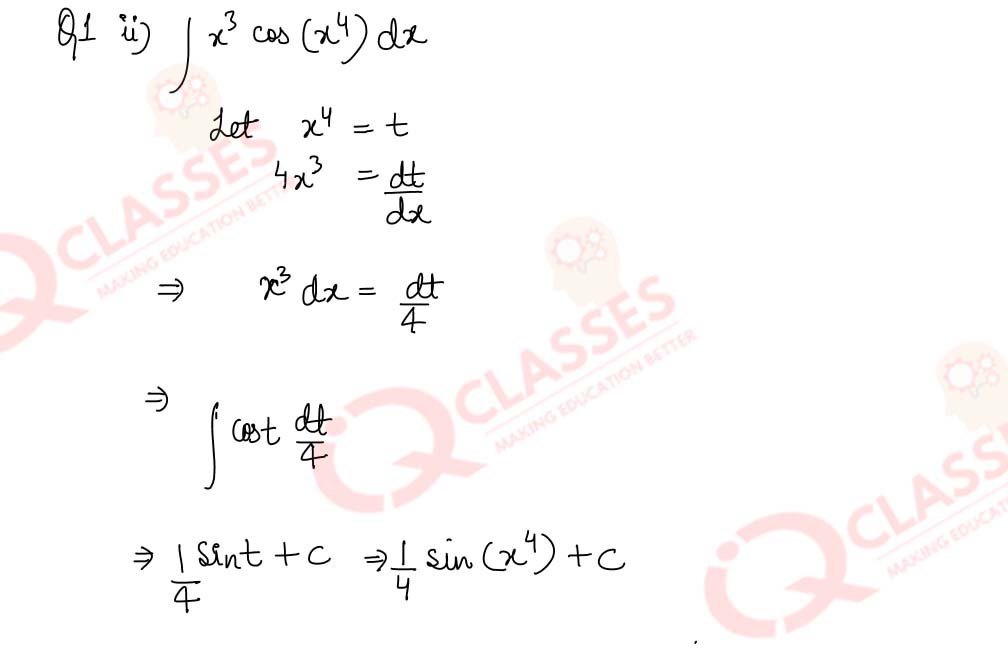 Q1 ii) ∫ x³ cos (x⁴) dx
Let x⁴ = t
4x³ = dt/dx
⇒ x³ dx = dt/4
⇒ ∫ cos t dt/4
⇒ 1/4 sin t + c ⇒ 1/4 sin (x⁴) + c
CLASSES
MAKING EDUCATION BETTER
IQ CLASSES
MAKING EDUCATION BETTER
IQ CLASS
MAKING EDUCAT